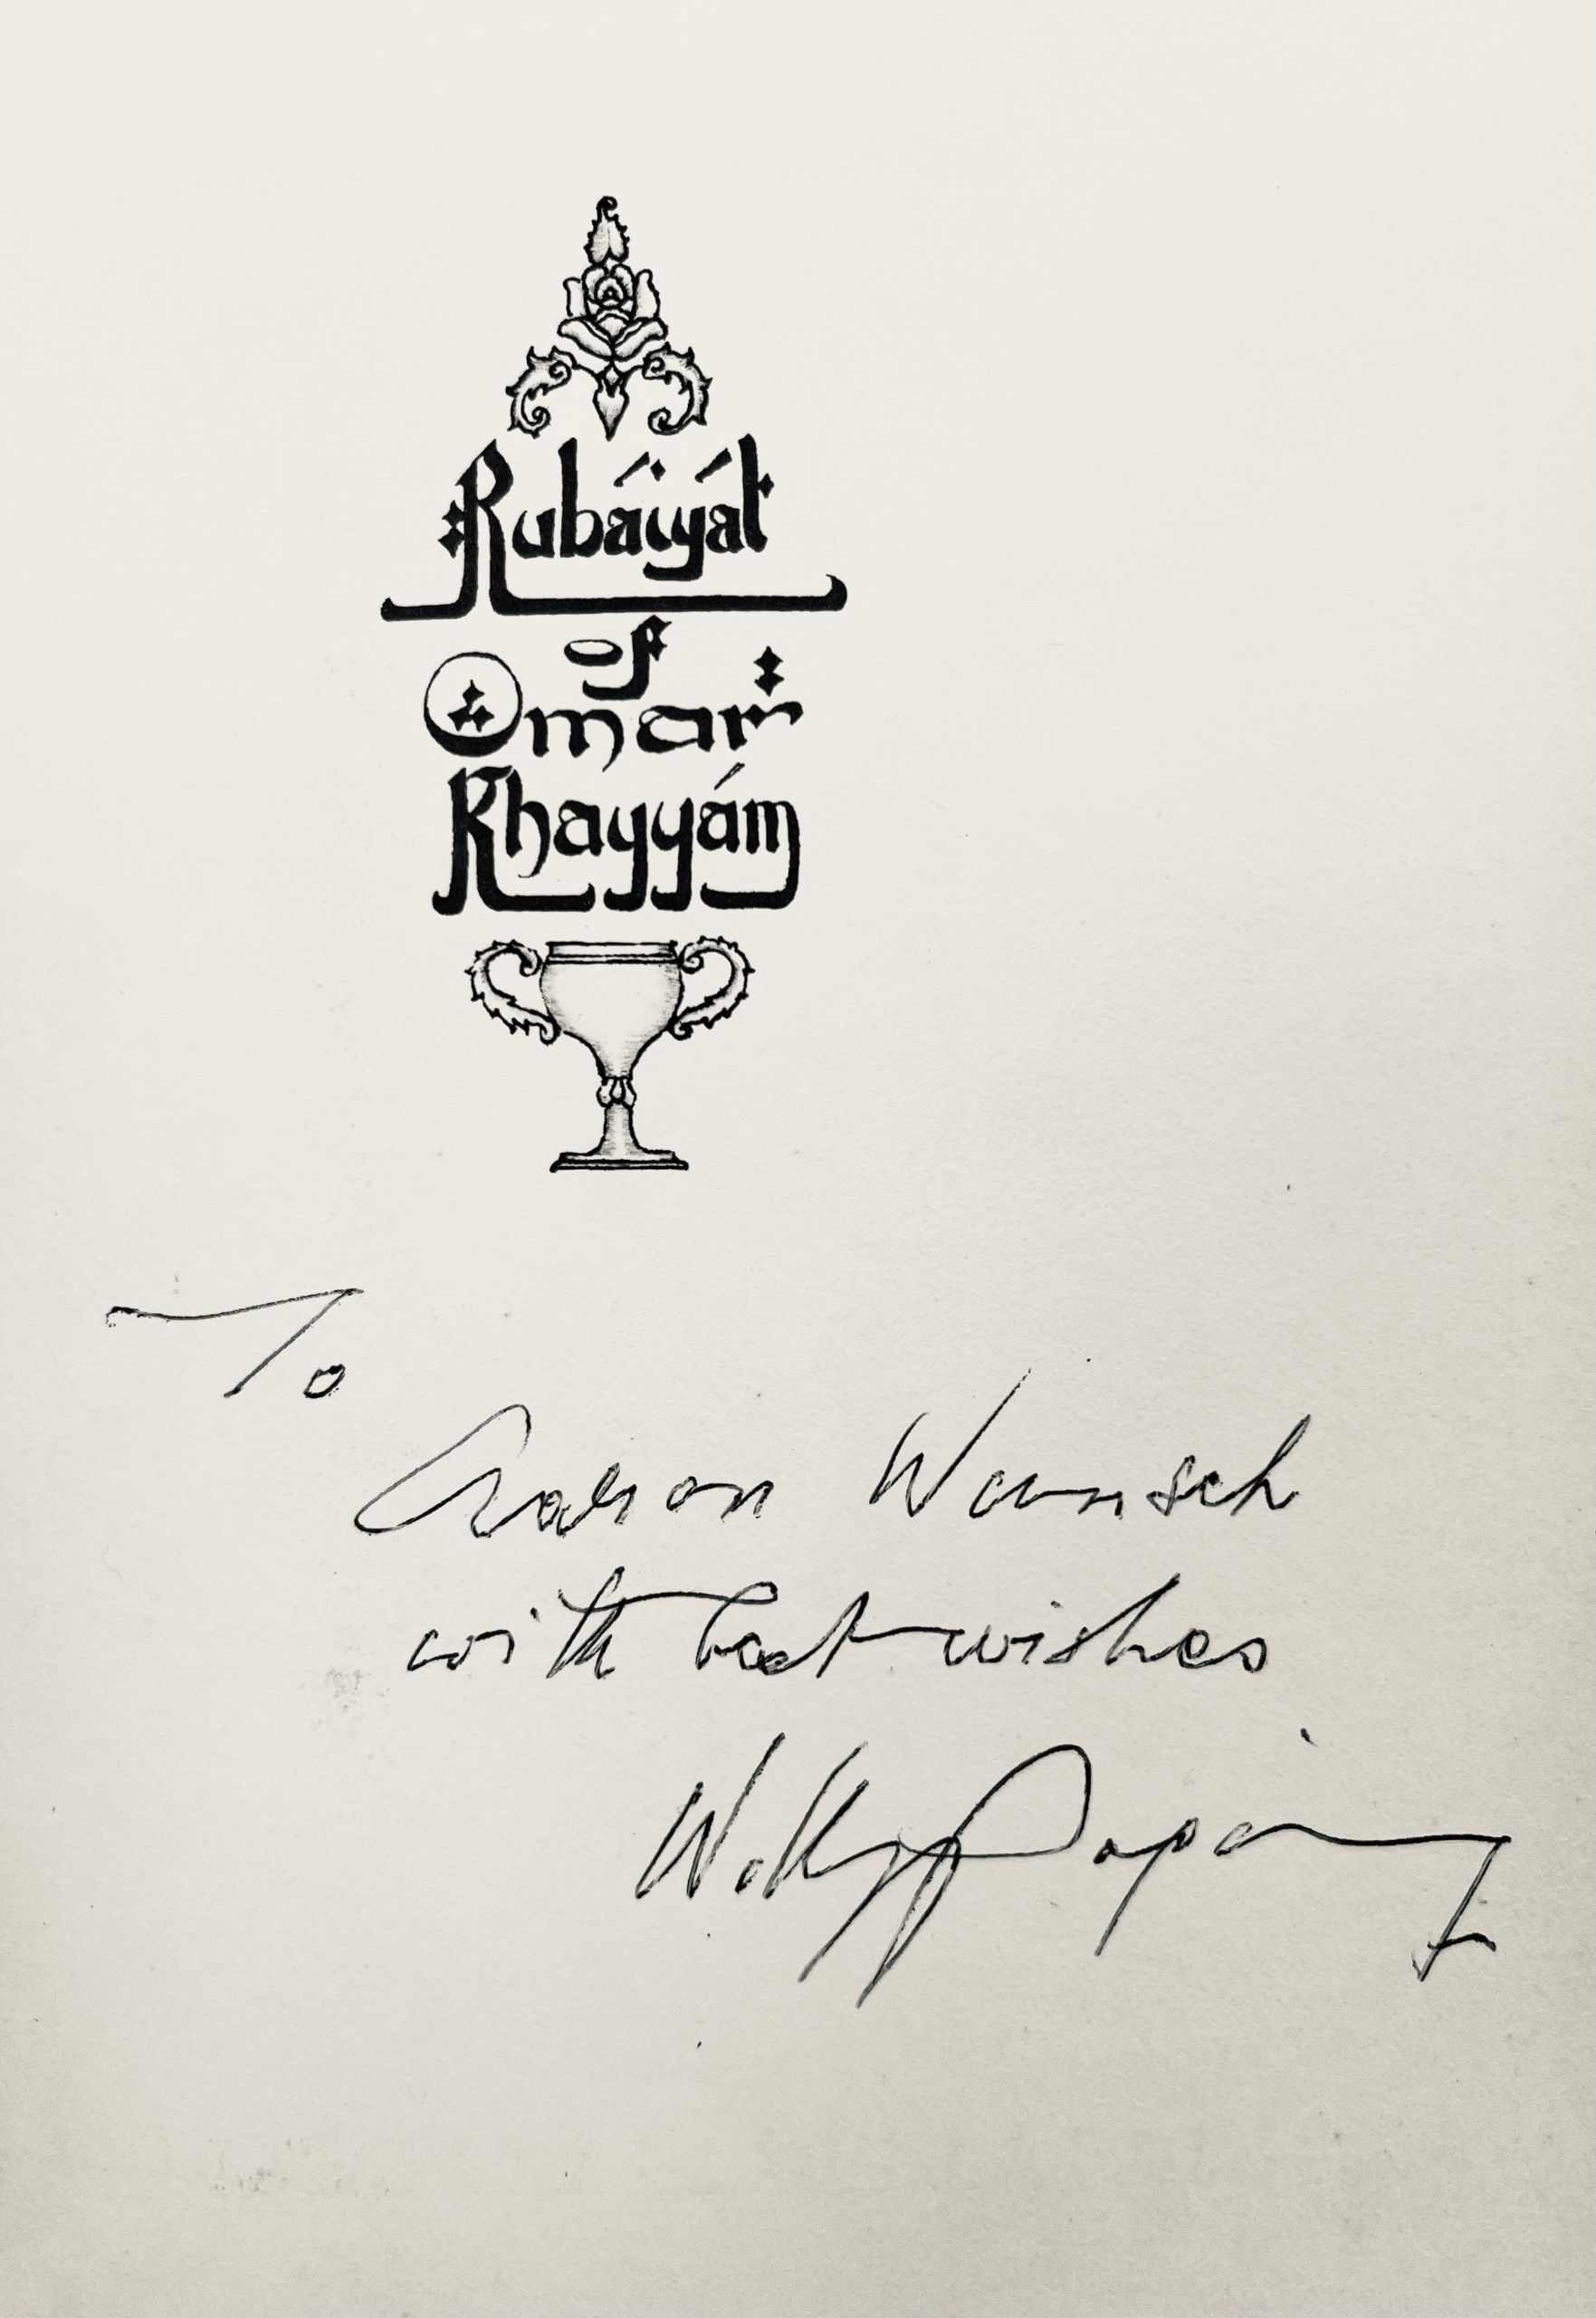 Rubáiyát
of
Omar
Khayyám
To
Wunsch
with best wishes
Willy Pogány